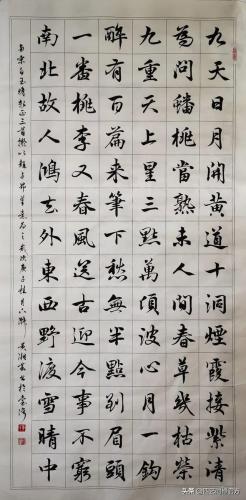 九天日月開黄道十洞煙霞接紫清
為問蟠桃當熟未人間春草幾枯榮
九重天上星三點萬頃波心月一鈎
醉有百篇来筆下愁無半點到眉頭
一番桃李又春風送古迎今事不窮
南北故人鴻去外東西野渡雪晴中
南宋白玉蟾三首擬以趙子昂筆意為之歲次庚子桂月